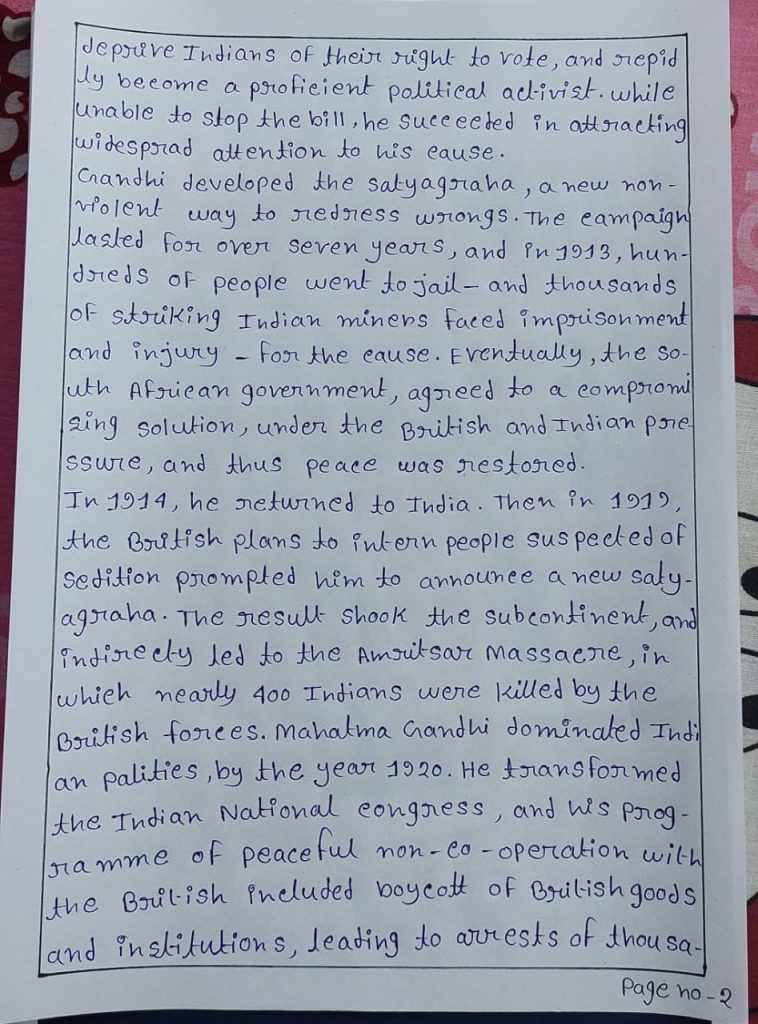 deprive Indians of their right to vote, and repid
ly become a proficient political activist. while
unable to stop the bill, he succeeded in attracting
widesprad attention to his cause.
Gandhi developed the satyagraha, a new non-
violent way to redress wrongs. The campaign
lasted for over seven years, and in 1913, hun-
dreds of people went to jail - and thousands
of striking Indian miners faced imprisonment
and injury - for the cause. Eventually, the so-
uth African government, agreed to a compromi
sing solution, under the British and Indian pre
ssure, and thus peace was restored.
In 1914, he returned to India. Then in 1919,
the British plans to intern people suspected of
sedition prompted him to announce a new saty-
agraha. The result shook the subcontinent, and
indirectly led to the Amritsar Massacre, in
which nearly 400 Indians were killed by the
British forces. Mahatma Gandhi dominated Indi
an palities, by the year 1920. He transformed
the Indian National congress, and his prog-
ramme of peaceful non-co-operation with
the British included boycott of British goods
and institutions, leading to arrests of thousa-
Page no-2